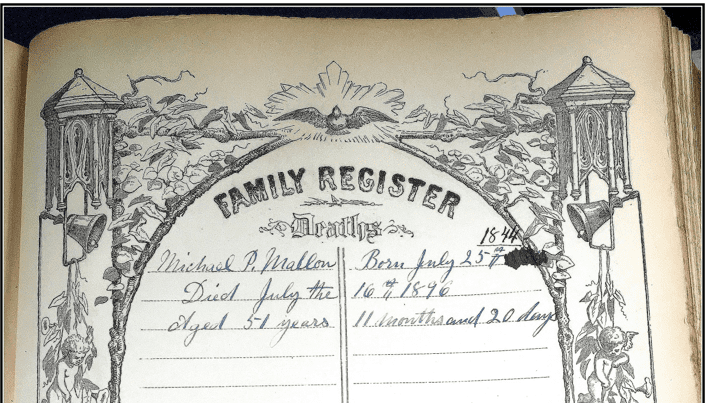 FAMILY REGISTER
Deaths
1844
Michael P. Mallon Born July 25th
Died July the 16th 1896
Aged 51 years 11 months and 20 days